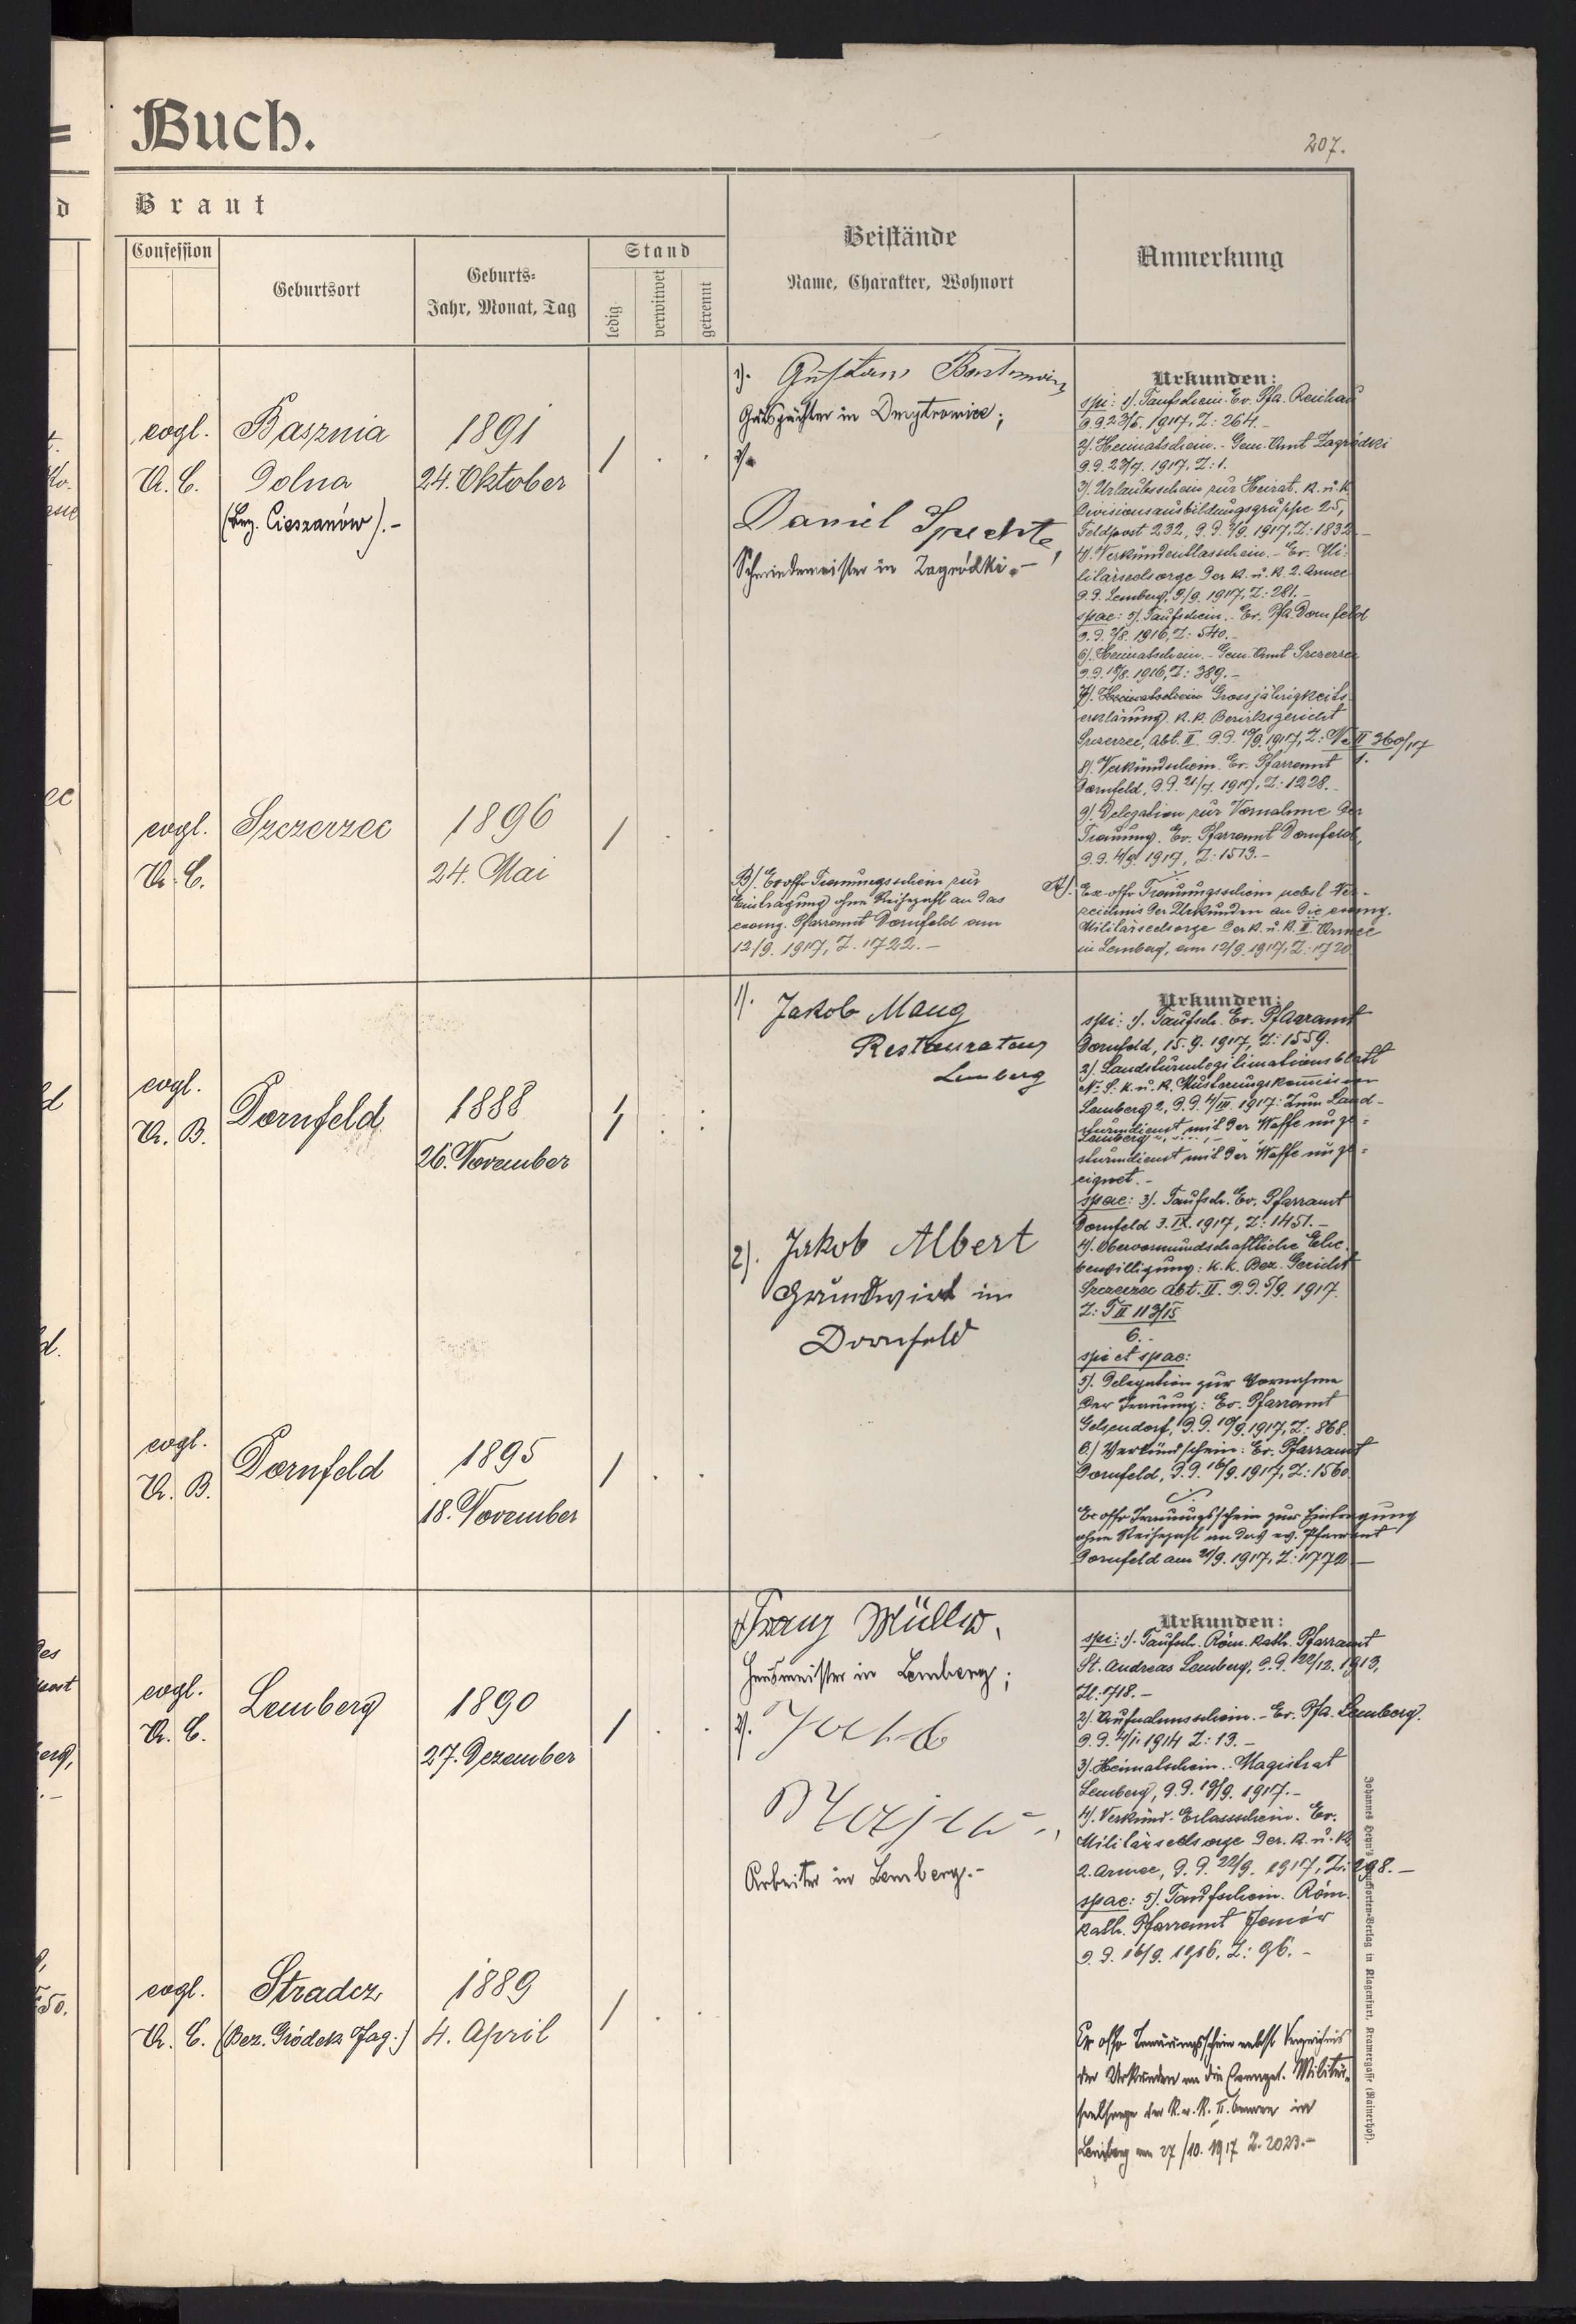 Buch.
207.
Braut
Confession
Geburtsort
Geburts-
Jahr, Monat, Tag
Stand
ledig
verwitwet
getrennt
Beistände
Name, Charakter, Wohnort
Anmerkung
evgl.
A. C.
Basznia
Dolna
(Bez. Cieszanów).-
1891
24. Oktober
/
1). Gustav
Gutspächter in Dmytrowice;
2).
Daniel Spechte,
Schmiedemeister in Zagródki.-
Urkunden:
spi: 1). Taufschein. Ev. Pfa. Reichau
d.d. 23/5. 1917, Z: 264.-
2). Heimatschein.- Gem. Amt Zagródki
d.d. 23/7. 1917. Z: 1.
3). Urlaubsschein zur Heirat. k. u. k.
Divisionsausbildungsgruppe 25,
Feldpost 232, d.d. 7/9. 1917, Z: 1832.-
4). Verkündenlassschein.- Ev. Mi-
litärseelsorge der k. u. k. 2. Armee
d.d. Lemberg, 9/9. 1917, Z: 281.-
spae: 5). Taufschein.. Ev. Pfa. Dornfeld
d.d. 7/8. 1916, Z: 540.-
6). Heimatschein.- Gem. Amt Szczerzec
d.d. 18/8. 1916, Z: 389.-
7). Heimatschein Grossjährigkeits-
erklärung. k. k. Bezirksgericht
Szczerzec, Abt. II. d.d. 10/9. 1917, Z: Nc II 360/17
1.
8). Verkündschein. Ev. Pfarramt
Dornfeld, d.d. 21/7. 1917, Z: 1228.-
9). Delegation zur Vornahme der
Trauung. Ev. Pfarramt Dornfeld,
d.d. 4/9. 1917, Z: 1513.-
evgl.
A. C.
Szczerzec
1896
24. Mai
/
B). Ex offo Trauungsschein zur
Eintragung ohne Reihezahl an das
evang. Pfarramt Dornfeld am
12/9. 1917, Z. 1722.-
A). Ex offo Trauungsschein nebst Ver-
zeichnis der Urkunden an die evang.
Militärseelsorge der k. u. k. II. Armee
in Lemberg, am 12/9. 1917, Z: 1720.
evgl.
A. B.
Dornfeld
1888
26. November
/
/
1). Jakob Mang
Restaurateur
Lemberg
2). Jakob Albert
Grundwirt in
Dornfeld
Urkunden:
spi: 1). Taufsch. Ev. Pfarramt
Dornfeld, 15. 9. 1917, Z: 1559.
2). Landsturmlegitimationsblatt
k. u. k. Musterungskommission
Lemberg 2, d.d. 4/III. 1917: Zum Land-
sturmdienst mit der Waffe unge-
Lemberg
sturmdienst mit der Waffe unge-
eignet.-
spae: 3). Taufsch. Ev. Pfarramt
Dornfeld 3. IX. 1917, Z: 1451.-
4). Obervormundschaftliche Ehe-
bewilligung: k. k. Bez. Gericht
Szczerzec Abt. II. d.d. 5/9. 1917.
Z: P II 113/15
6.
spi et spae:
5). Delegation zur Vornahme
der Trauung: Ev. Pfarramt
Gelsendorf, d.d. 10/9. 1917, Z: 868.
6.) Verkündschein: Ev. Pfarramt
Dornfeld, d.d. 16/9. 1917, Z: 1560.
evgl.
A. B.
Dornfeld
1895
18. November
/
Ex offo Trauungsschein zur Eintragung
ohne Reihezahl an das ev. Pfarramt
Dornfeld am 21/9. 1917, Z: 1772.-
evgl.
A. C.
Lemberg
1890
27. Dezember
/
1). Franz Müller,
Hausmeister in Lemberg;
2).
Arbeiter in Lemberg.-
Urkunden:
spi: 1). Taufsch. Röm. kath. Pfarramt
St. Andreas Lemberg, d.d. 22/12. 1913,
Zl: 718.-
2). Aufnahmsschein.- Ev. Pfa. Lemberg.
d.d. 4/1. 1914 Z: 13.-
3). Heimatschein.. Magistrat
Lemberg, d.d. 19/9. 1917.-
4). Verkünd-Erlassschein. Ev.
Militärseelsorge der k. u. k.
2. Armee, d.d. 22/9. 1917, Z: 298.-
spae: 5). Taufschein. Röm.
kath. Pfarramt Janów
d.d. 16/9. 1916. Z: 96.-
evgl.
A. C.
Stradcz
(Bez. Gródek Jag.)
1889
4. April
/
Ex offo Trauungsschein nebst Verzeichnis
der Urkunden an die Evangel. Militär-
seelsorge der k. u. k. II. Armee in
Lemberg am 27/10. 1917 Z. 2023.-
Johannes Heyn's Drucksorten-Verlag in Klagenfurt, Kramergasse (Rainerhof).